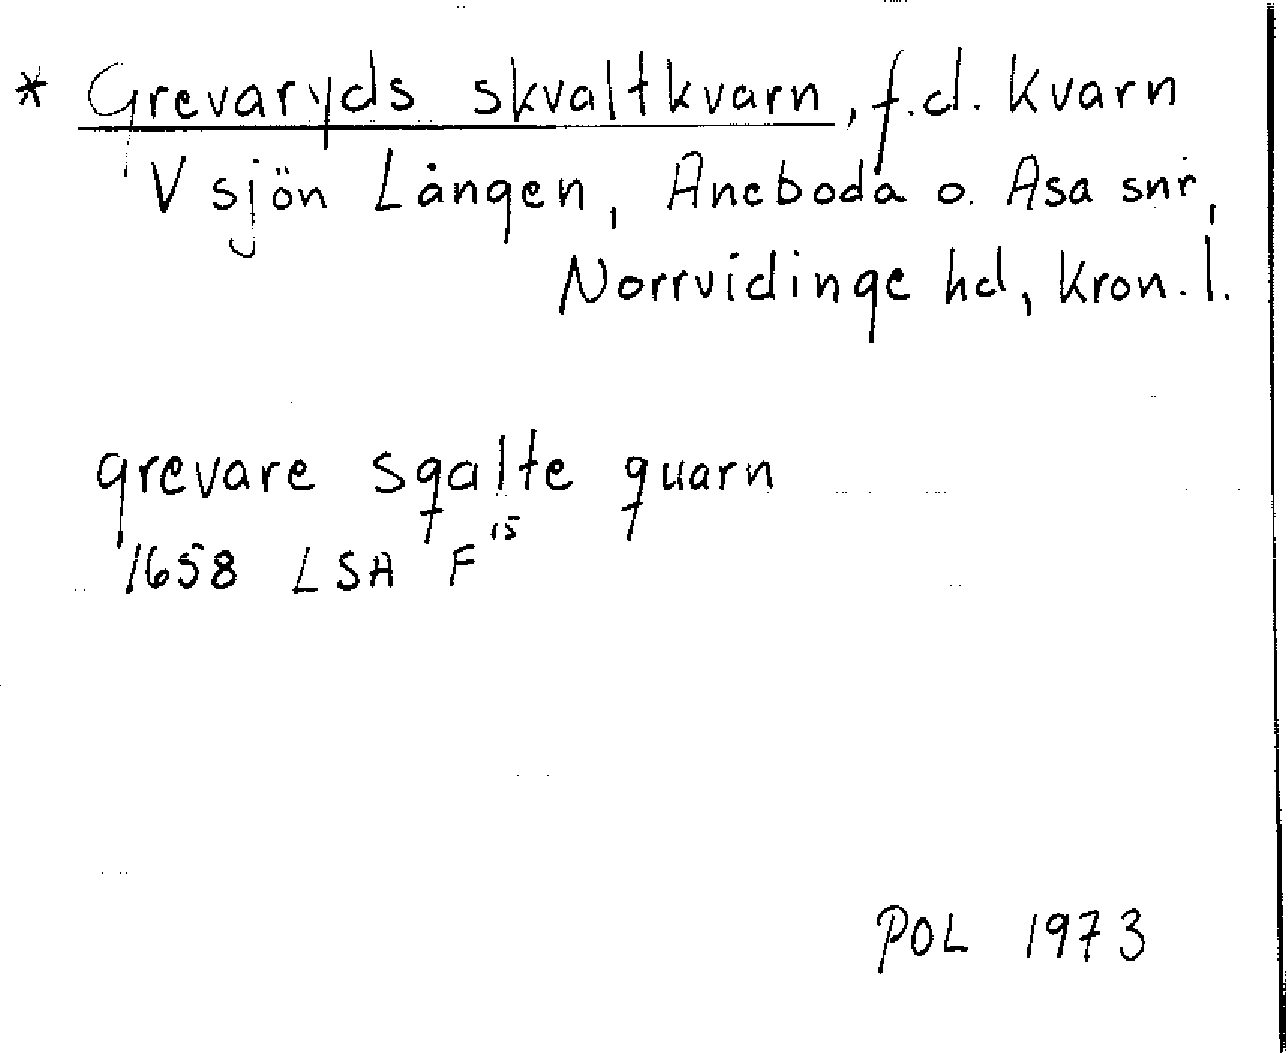 * Grevaryds skvaltkvarn, f.d. kvarn
V sjön Lången, Aneboda o. Asa snr,
Norrvidinge hd, Kron. l.
grevare sqalte quarn
1658 LSA F 15
POL 1973